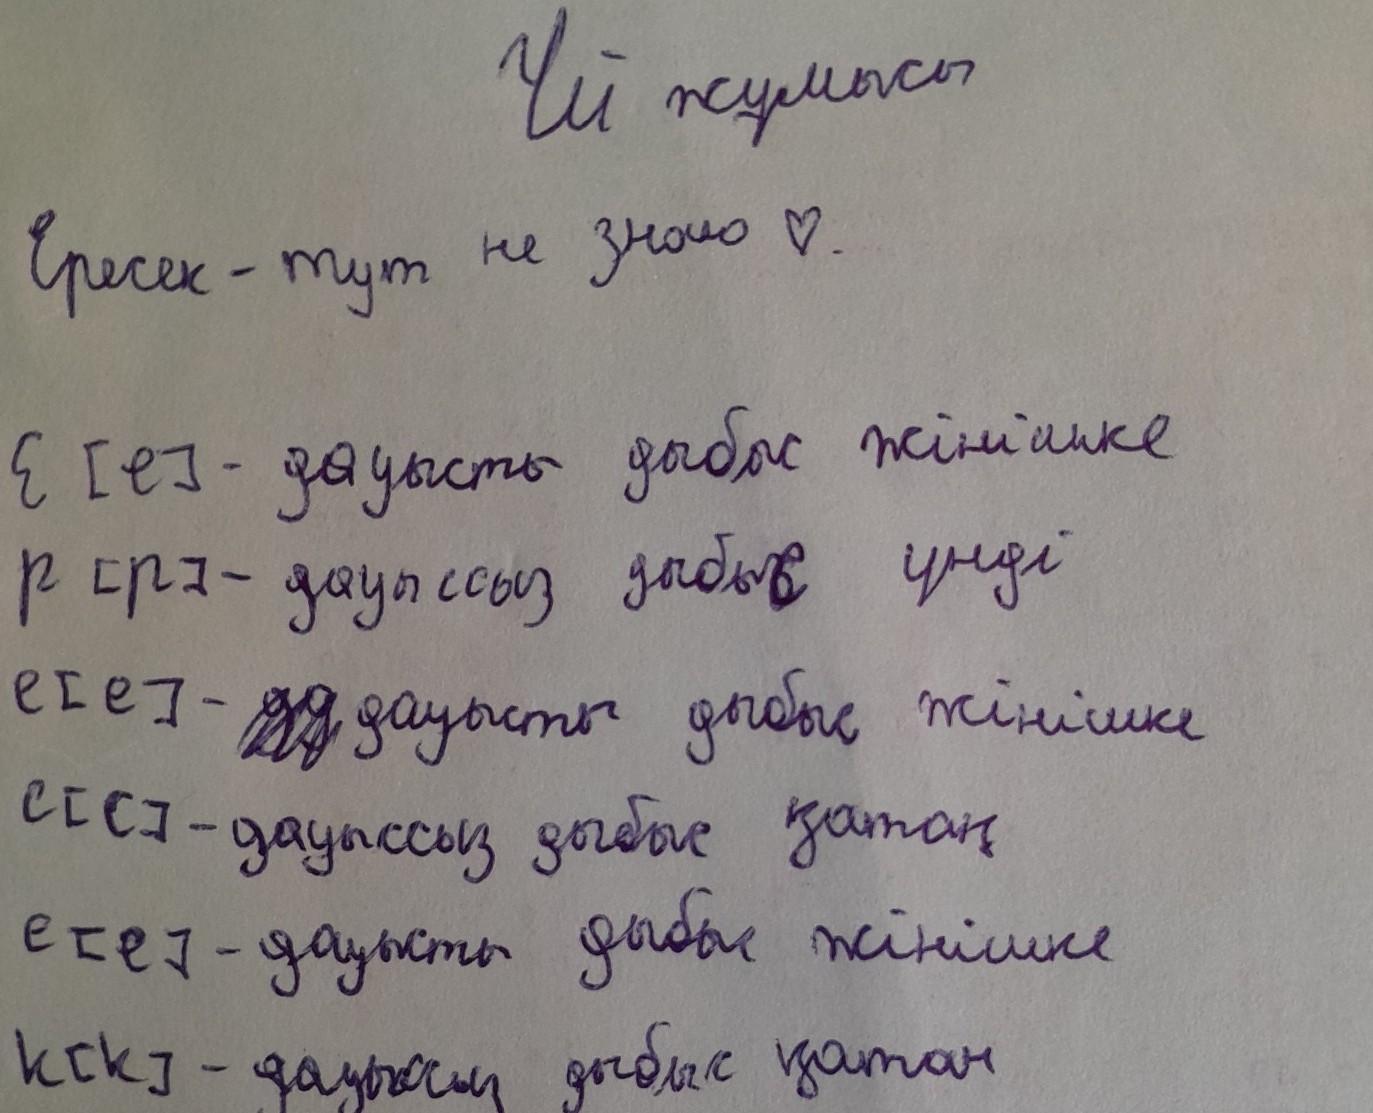 Үй жұмысы
Ересек - тут не знаю ♡.
Е [е] - дауысты дыбыс жінішке
р [р] - дауыссыз дыбыс үнді
е [е] - дауысты дыбыс жінішке
с [с] - дауыссыз дыбыс қатаң
е [е] - дауысты дыбыс жінішке
к [к] - дауыссыз дыбыс қатан